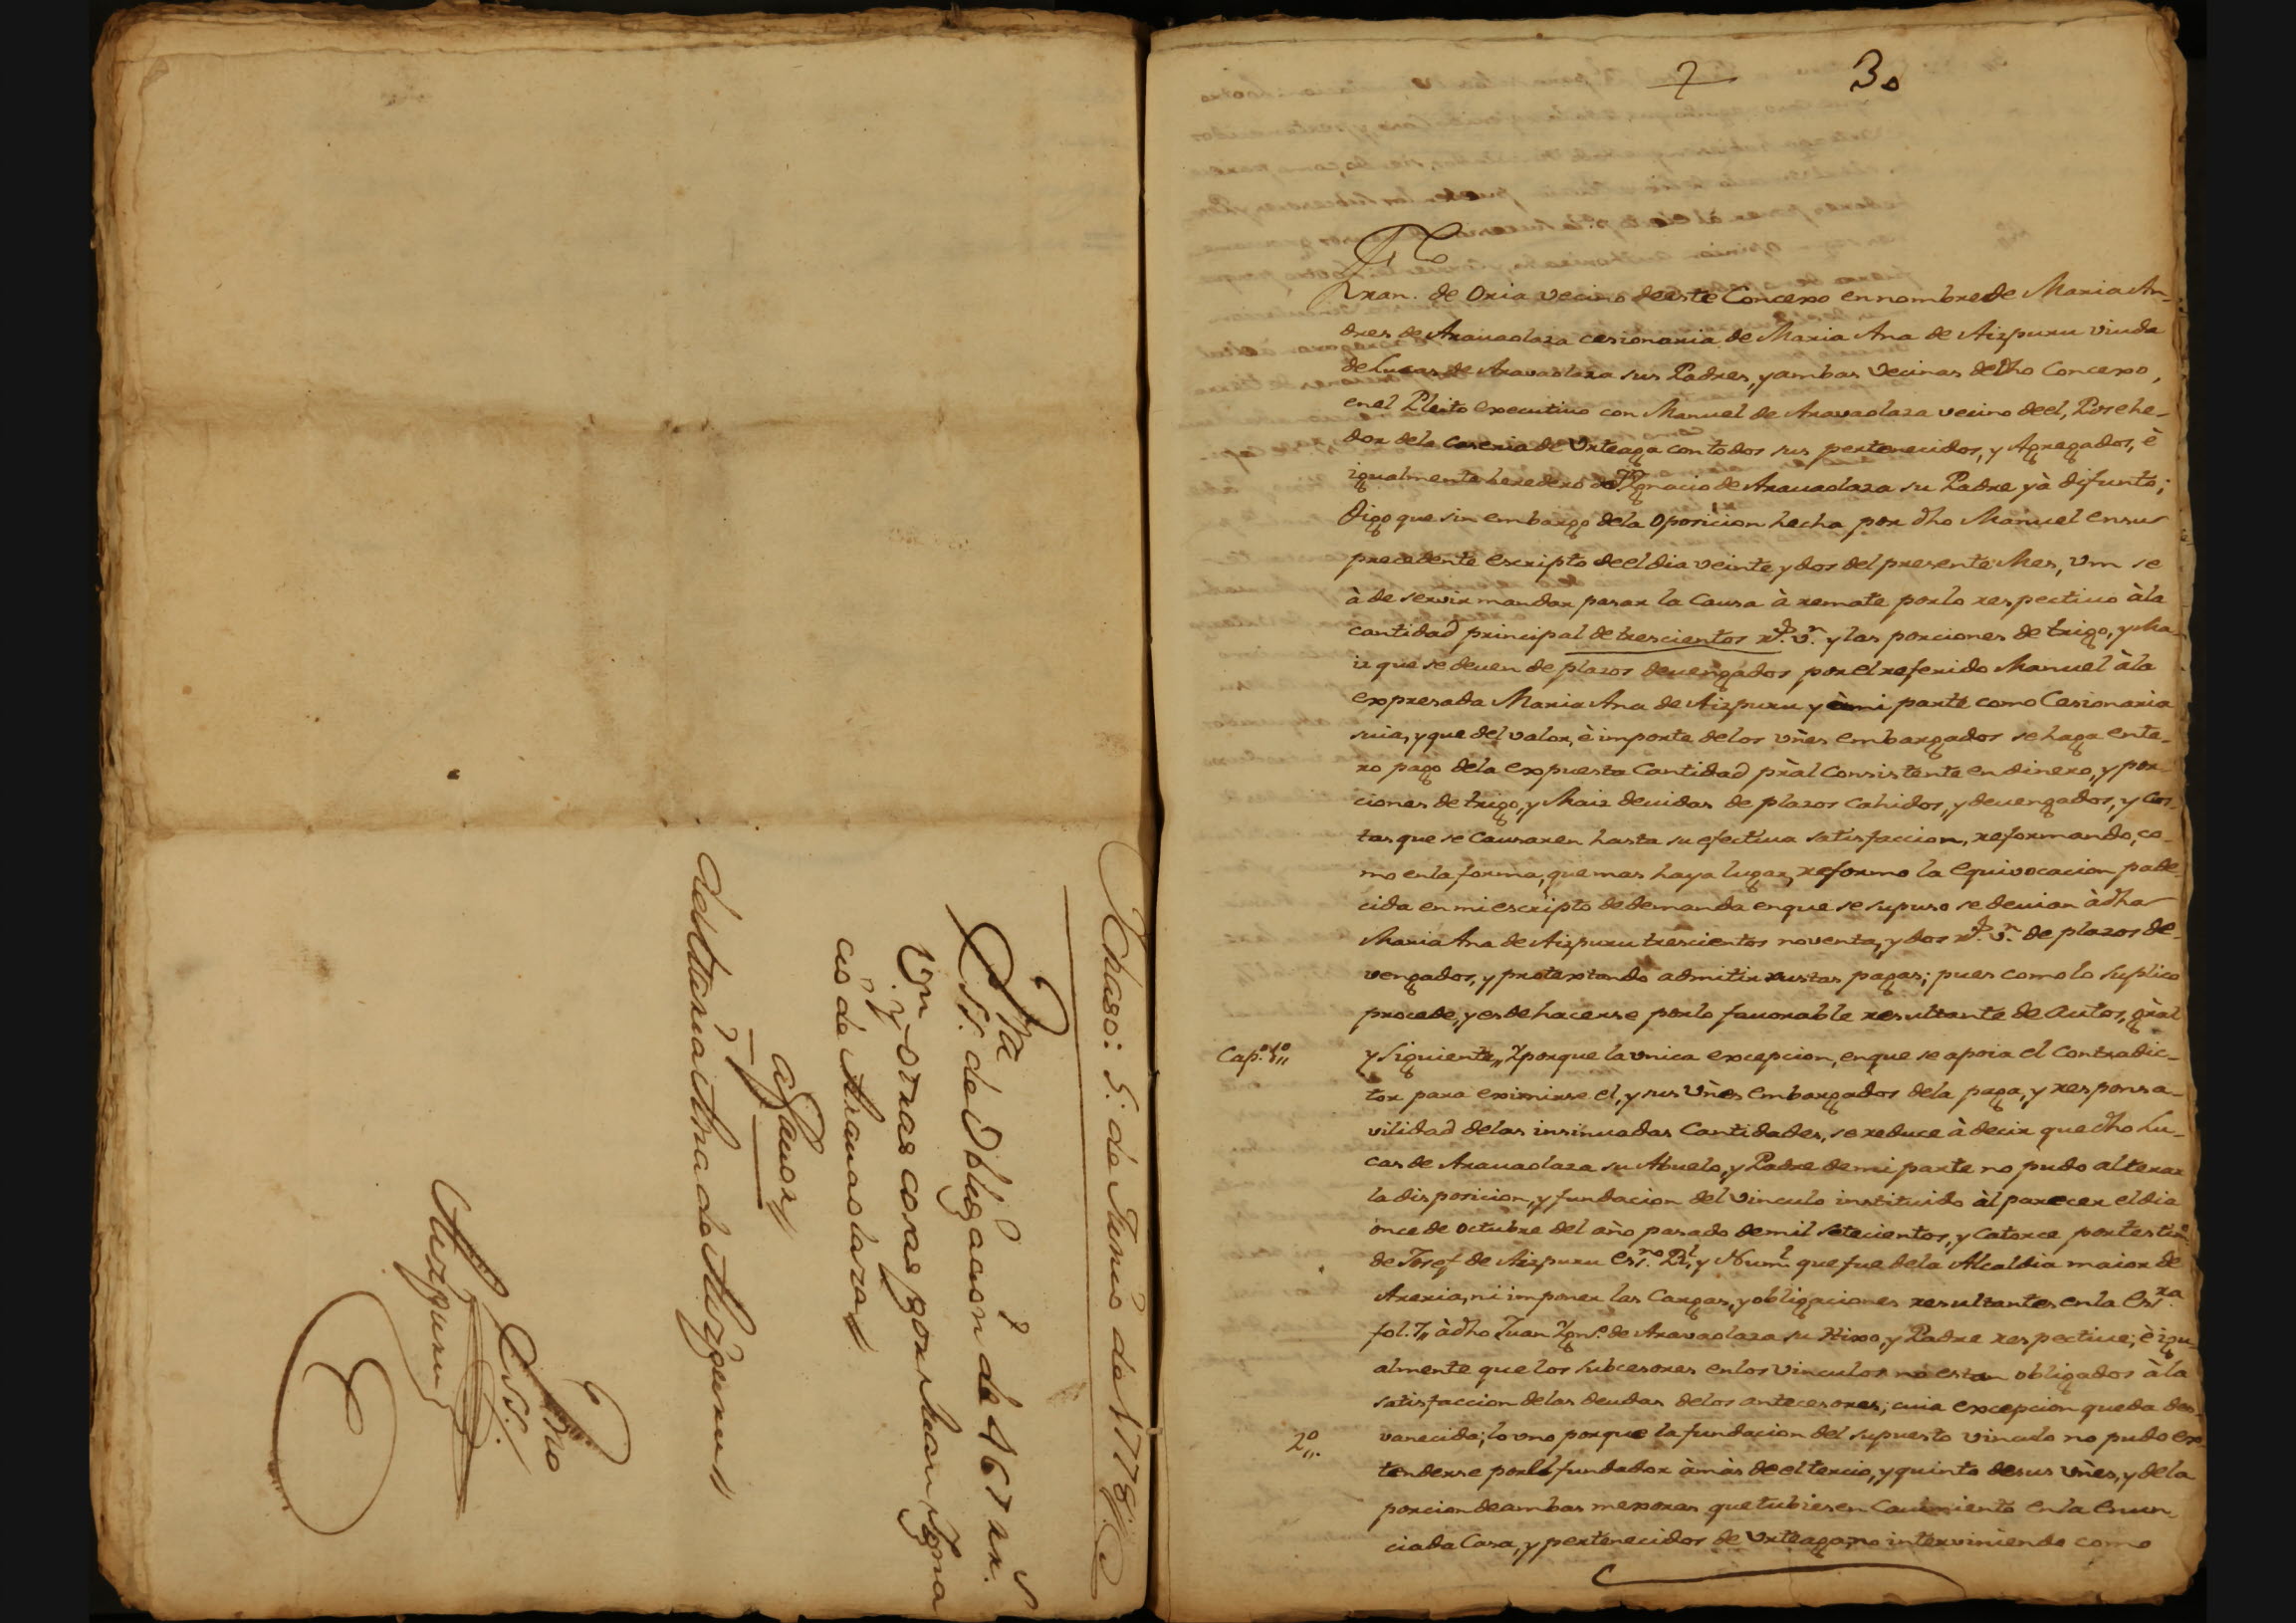 Ichaso: 5. de Junio de 1778,,
Cta
Ess. de Obligacion de 467 rr.s
Vn y otras cosas por Juan Igna
cio de Arauaolaza
afauor
de Maria Ana de Aizpuru
Esno
Ess.
Aizpuru
7 30
Fran. de Oria vecino de este Concexo en nombre de Maria An-
dres de Arauaolaza cesionaria de Maria Ana de Aizpuru viuda
de Lucas de Aravaolaza sus Padres, y ambas vecinas de dho Concexo,
en el Pleito executivo con Manuel de Aravaolaza vecino de el, Posehe-
dor de la Caseria de Vrteaga con todos sus pertenecidos, y Agregados, è
igualmente heredero de Ygnacio de Arauaolaza su Padre yà difunto;
digo que sin embargo de la oposicion hecha por dho Manuel en su
precedente escripto de el dia veinte y dos del presente Mes, vm se
à de servir mandar pasar la Causa à remate por lo respectiuo à la
cantidad principal de trescientos rs. vn. y las porciones de trigo, y Ma-
iz que se deuen de plazos deuengados por el referido Manuel à la
expresada Maria Ana de Aizpuru y à mi parte como Cesionaria
suia, y que del valor, è importe de los vñes embargados se haga ente-
ro pago de la expuesta Cantidad prãl Consistente en dinero, y por-
ciones de trigo, y Maiz deuidas de plazos Cahidos, y deuengados, y Cos-
tas que se Causaren hasta su efectiua satisfaccion, reformando, co-
mo en la forma, que mas haya lugar, reformo la equivocacion pade-
cida en mi escripto de demanda en que se supuso se deuian à dha
Maria Ana de Aizpuru trescientos noventa, y dos rs. vn. de plazos de-
vengados, y protextando admitir justas pagas; pues como lo suplico
procede, y es de hacerse por lo fauorable resultante de Autos, grãl
Cap.o 1o,, y Siguiente,, Yporque la vnica excepcion, en que se apoia el Contradic-
tor para eximirse el, y sus Vñes embargados de la paga, y responsa-
vilidad de las insinuadas Cantidades, se reduce à decir que dho Lu-
cas de Arauaolaza su Abuelo, y Padre de mi parte no pudo alterar
la disposicion, y fundacion del vinculo instituido àl parecer el dia
once de octubre del año pasado de mil setecientos, y catorce por testim.o
de Josef de Aizpuru Esno. Rl. y Numl. que fue de la Alcaldia maior de
Areria, ni imponer las Cargas, y obligaciones resultantes en la Esra.
fol. 7,, à dho Juan Ygno. de Aravaolaza su Hixo, y Padre respectiue; è igu-
almente que los subcesores en los vinculos no estan obligados à la
satisfaccion de las deudas de los antecesores; cuia excepcion queda des-
2o,,. vanecida; lo vno porque la fundacion del supuesto vinculo no pudo ex-
tenderse por el fundador à màs de el tercio, y quinto de sus vñes, y de la
porcion de ambas mexoras que tubiesen Cauimiento en la enun-
ciada Casa, y pertenecidos de Vrteaga, no interviniendo como